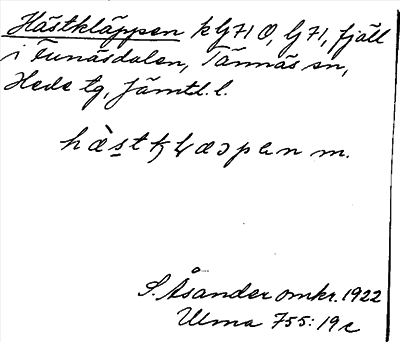 Hästkläppen k G 71 O, G 71, fjäll
i Funäsdalen, Tännäs sn,
Hede tg, Jämtl. l.
S. Åsander omkr. 1922
Ulma 755:19c